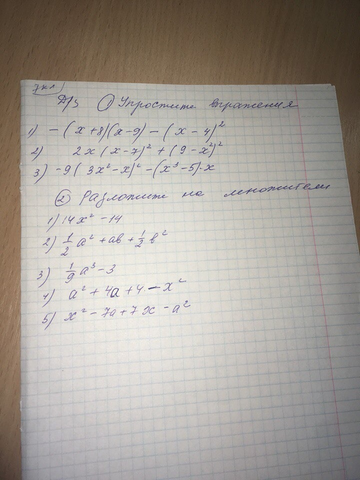 7 кл
Д/З ① Упростите выражения
1) -(x+8)(x-9)-(x-4)²
2) 2x(x-7)²+(9-x²)²
3) -9(3x²-x)²-(x³-5)·x
② Разложите на множители
1) 14x²-14
2) 1/2 a²+ab+1/2 b²
3) 1/9 a³-3
4) a²+4a+4-x²
5) x²-7a+7x-a²